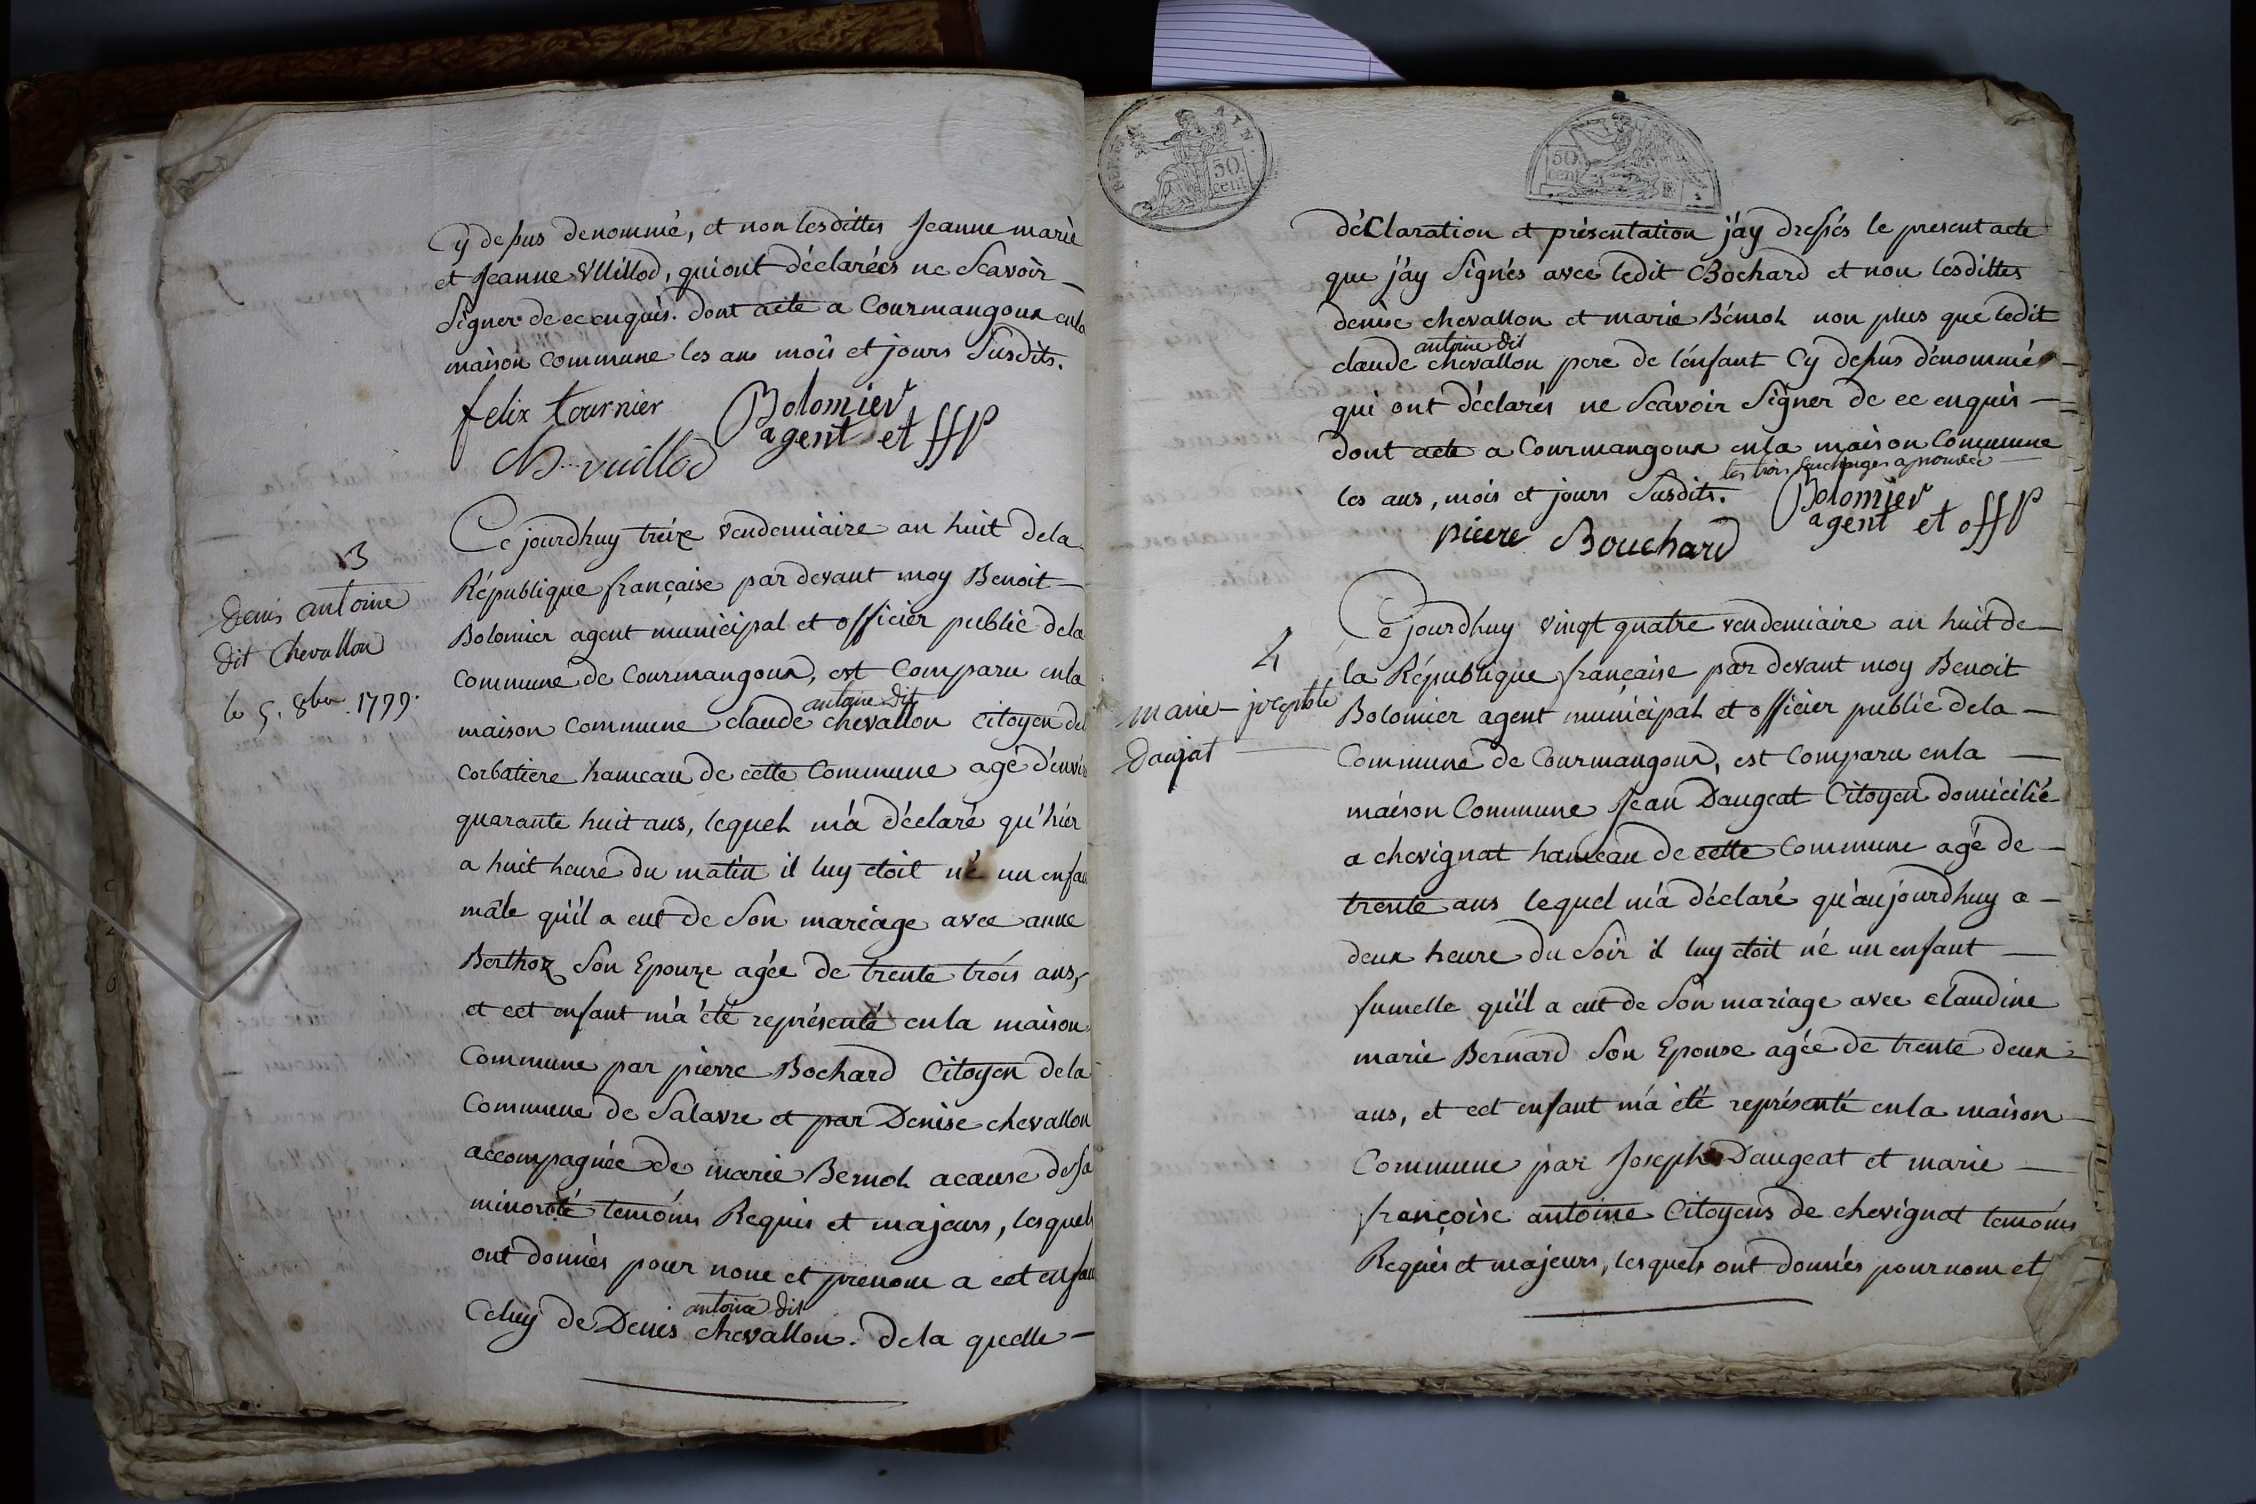 Cy desus denommé, et non lesdittes Jeanne marie
et Jeanne Vuillod, qui ont déclarées ne Scavoir
Signer de ce enquis. dont acte a Courmangoux en la
maison Commune les ans mois et jours Susdits.
felix tournier
Bolomier
agent et ffP
vuillod
3
Denis antoine
dit Chevallon
le 5. 8bre. 1799.
Ce jourdhuy treize vendemiaire an huit de la
République française par devant moy Benoit
Bolomier agent municipal et officier public de la
Commune de Courmangoux, est Comparu en la
antoine dit
maison Commune claude chevallon Citoyen de
Corbatiere hameau de cette Commune agé d'envir
quarante huit ans, lequel m'a déclaré qu'hier
a huit heure du matin il luy etoit né un enfan
mâle qu'il a eut de Son mariage avec anne
Berthoz Son Epouze agée de trente trois ans,
et cet enfant m'a été représenté en la maison
Commune par pierre Bochard Citoyen de la
Commune de Salavre et par Denise chevallon
accompagnée de marie Bernol acause de sa
minorité temoins Requis et majeurs, lesquels
ont donnés pour nom et prenom a cet enfan
antoine dit
Celuy de Denis chevallon. de la quelle
50.
cent
50
cent
déClaration et présentation j'ay dressés le present acte
que j'ay Signés avec ledit Bochard et non lesdittes
denise chevallon et marie Bernol non plus que ledit
antoine dit
claude chevallon pere de l'enfant Cy desus dénommé
qui ont déclarés ne Scavoir Signer de ce enquis
dont acte a Courmangoux en la maison Commune
les trois surcharges aprouvée
les ans, mois et jours Susdits.
Bolomier
agent et offP
pierre Bouchard
4
marie-josephte
Daujat
Ce jourdhuy vingt quatre vendemiaire an huit de
la République française par devant moy Benoit
Bolomier agent municipal et officier public de la
Commune de Courmangoux, est Comparu en la
maison Commune Jean Daugeat Citoyen domicilié
a chevignat hameau de cette Commune agé de
trente ans lequel m'a déclaré qu'aujourdhuy a
deux heure du Soir il luy etoit né un enfant
fumelle qu'il a eut de Son mariage avec claudine
marie Bernard Son Epouse agée de trente deux
ans, et cet enfant m'a été représenté en la maison
Commune par Joseph Daugeat et marie
françoise antoine Citoyens de chevignat temoins
Requis et majeurs, lesquels ont donnés pour nom et